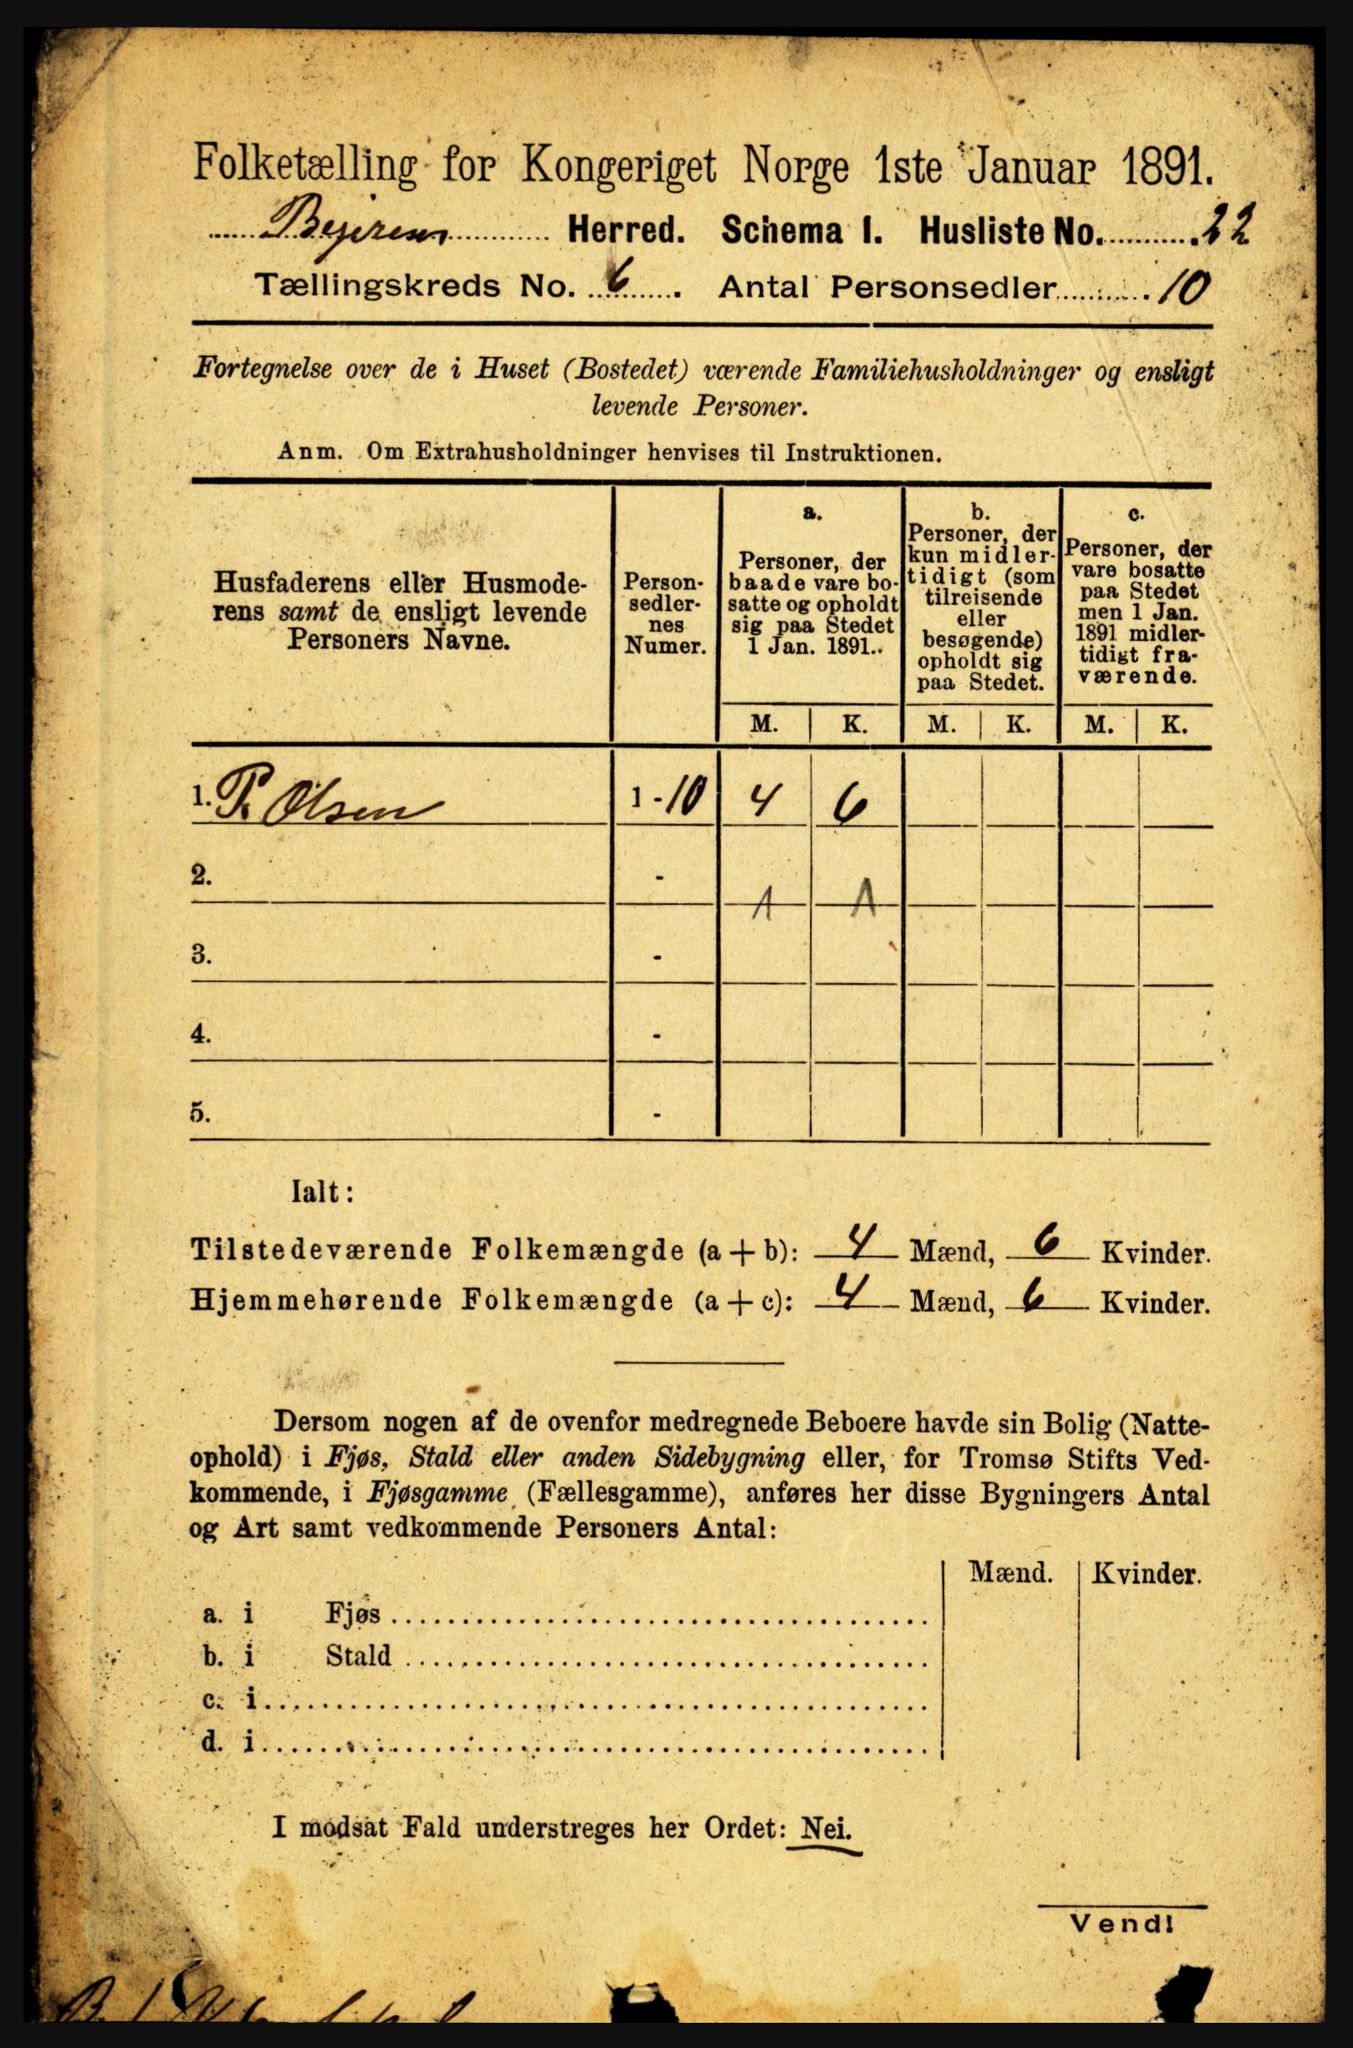 Folketælling for Kongeriget Norge 1ste Januar 1891.
Bejeren Herred. Schema I. Husliste No. 22
Tællingskreds No. 6. Antal Personsedler 10
Fortegnelse over de i Huset (Bostedet) værende Familiehusholdninger og ensligt
levende Personer.
Anm. Om Extrahusholdninger henvises til Instruktionen.
Husfaderens eller Husmode-
rens samt de ensligt levende
Personers Navne.
Person-
sedler-
nes
Numer.
a.
Personer, der
baade vare bo-
satte og opholdt
sig paa Stedet
1 Jan. 1891.
b.
Personer, der
kun midler-
tidigt (som
tilreisende
eller
besøgende)
opholdt sig
paa Stedet.
c.
Personer, der
vare bosatte
paa Stedet
men 1 Jan.
1891 midler-
tidigt fra-
værende.
M. K. M. K. M. K.
1. P. Olsen 1 - 10 4 6
2. -
1 1
3. -
4. -
5. -
Ialt:
Tilstedeværende Folkemængde (a + b): 4 Mænd, 6 Kvinder.
Hjemmehørende Folkemængde (a + c): 4 Mænd, 6 Kvinder.
Dersom nogen af de ovenfor medregnede Beboere havde sin Bolig (Natte-
ophold) i Fjøs, Stald eller anden Sidebygning eller, for Tromsø Stifts Ved-
kommende, i Fjøsgamme (Fællesgamme), anføres her disse Bygningers Antal
og Art samt vedkommende Personers Antal:
Mænd. Kvinder.
a. i Fjøs
b. i Stald
c. i
d. i
I modsat Fald understreges her Ordet: Nei.
Vend!